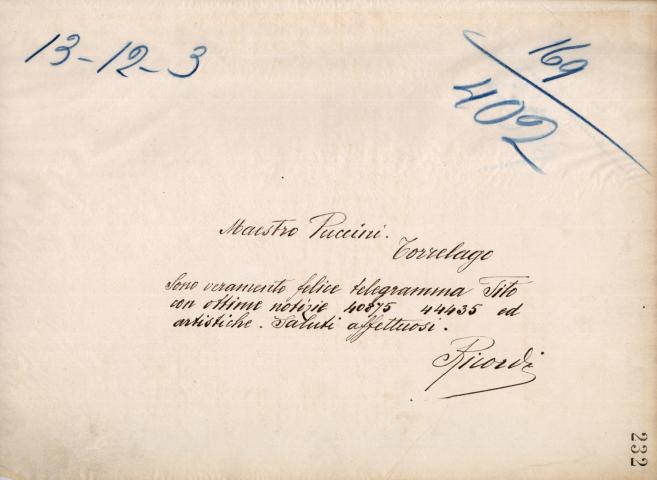 13-12-3
169
402
Maestro Puccini.
Torrelago
Sono veramente felice telegramma Tito
con ottime notizie 40875 44435 ed
artistiche. Saluti affettuosi.
Ricordi
232